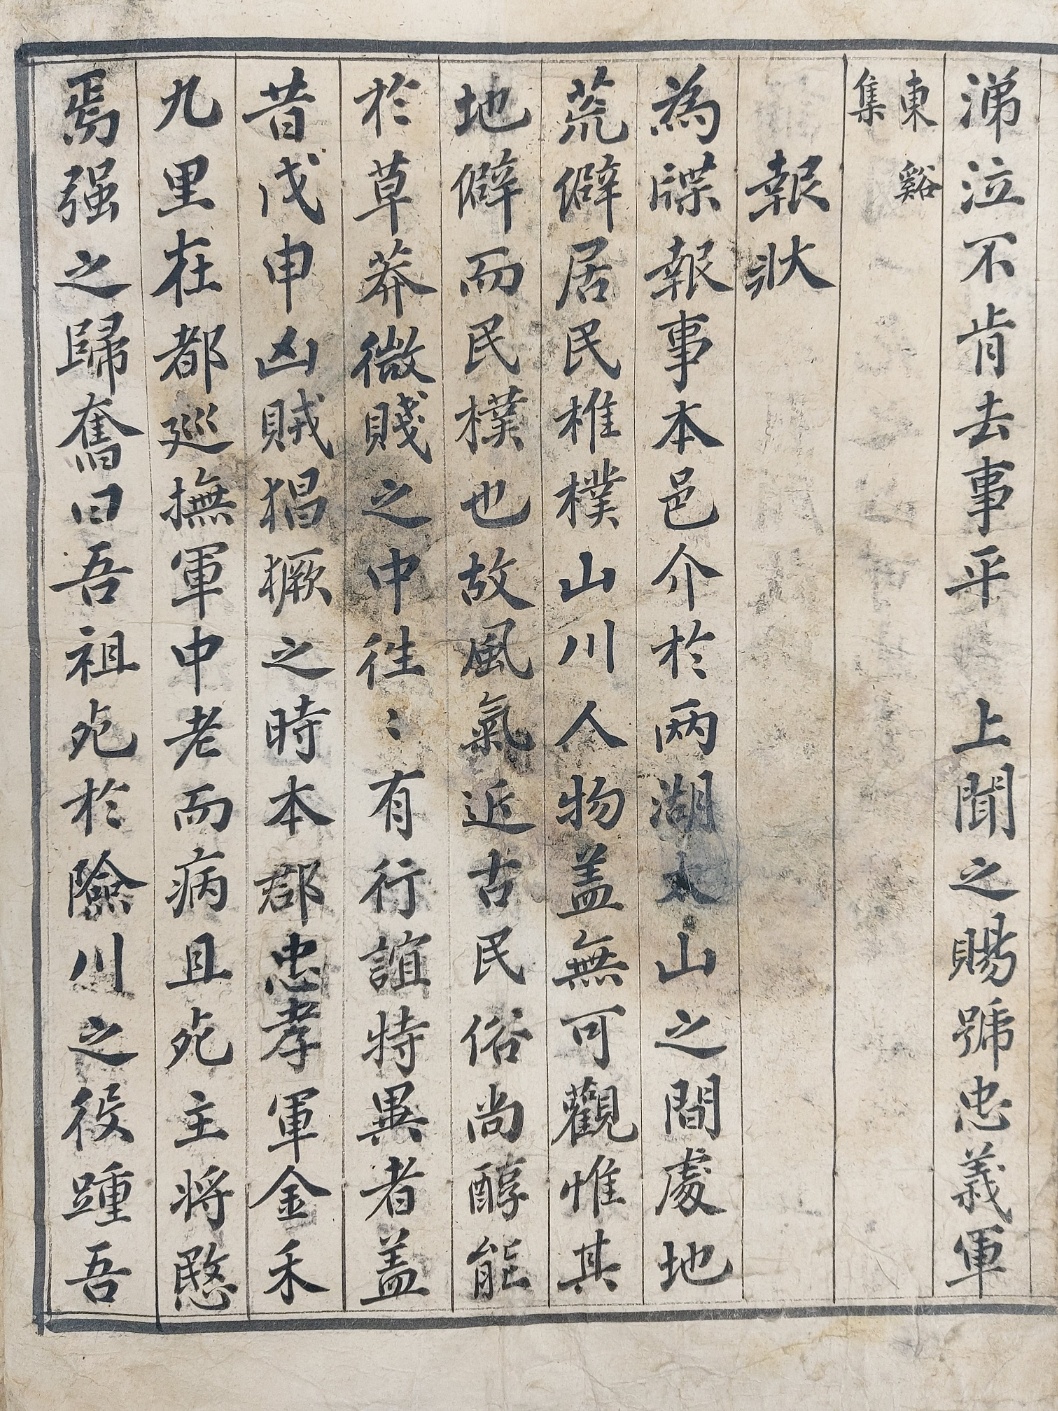 涕泣不肯去事平　上聞之賜號忠義軍
東谿
集
報狀
為牒報事本邑介於兩湖太山之間處地
荒僻居民椎樸山川人物盖無可觀惟其
地僻而民樸也故風氣近古民俗尚醇能
於草莽微賤之中徃〻有行誼特異者盖
昔戊申凶賊猖獗之時本郡忠孝軍金禾
九里在都廵撫軍中老而病且死主將愍
焉强之歸奮曰吾祖死於險川之役踵吾